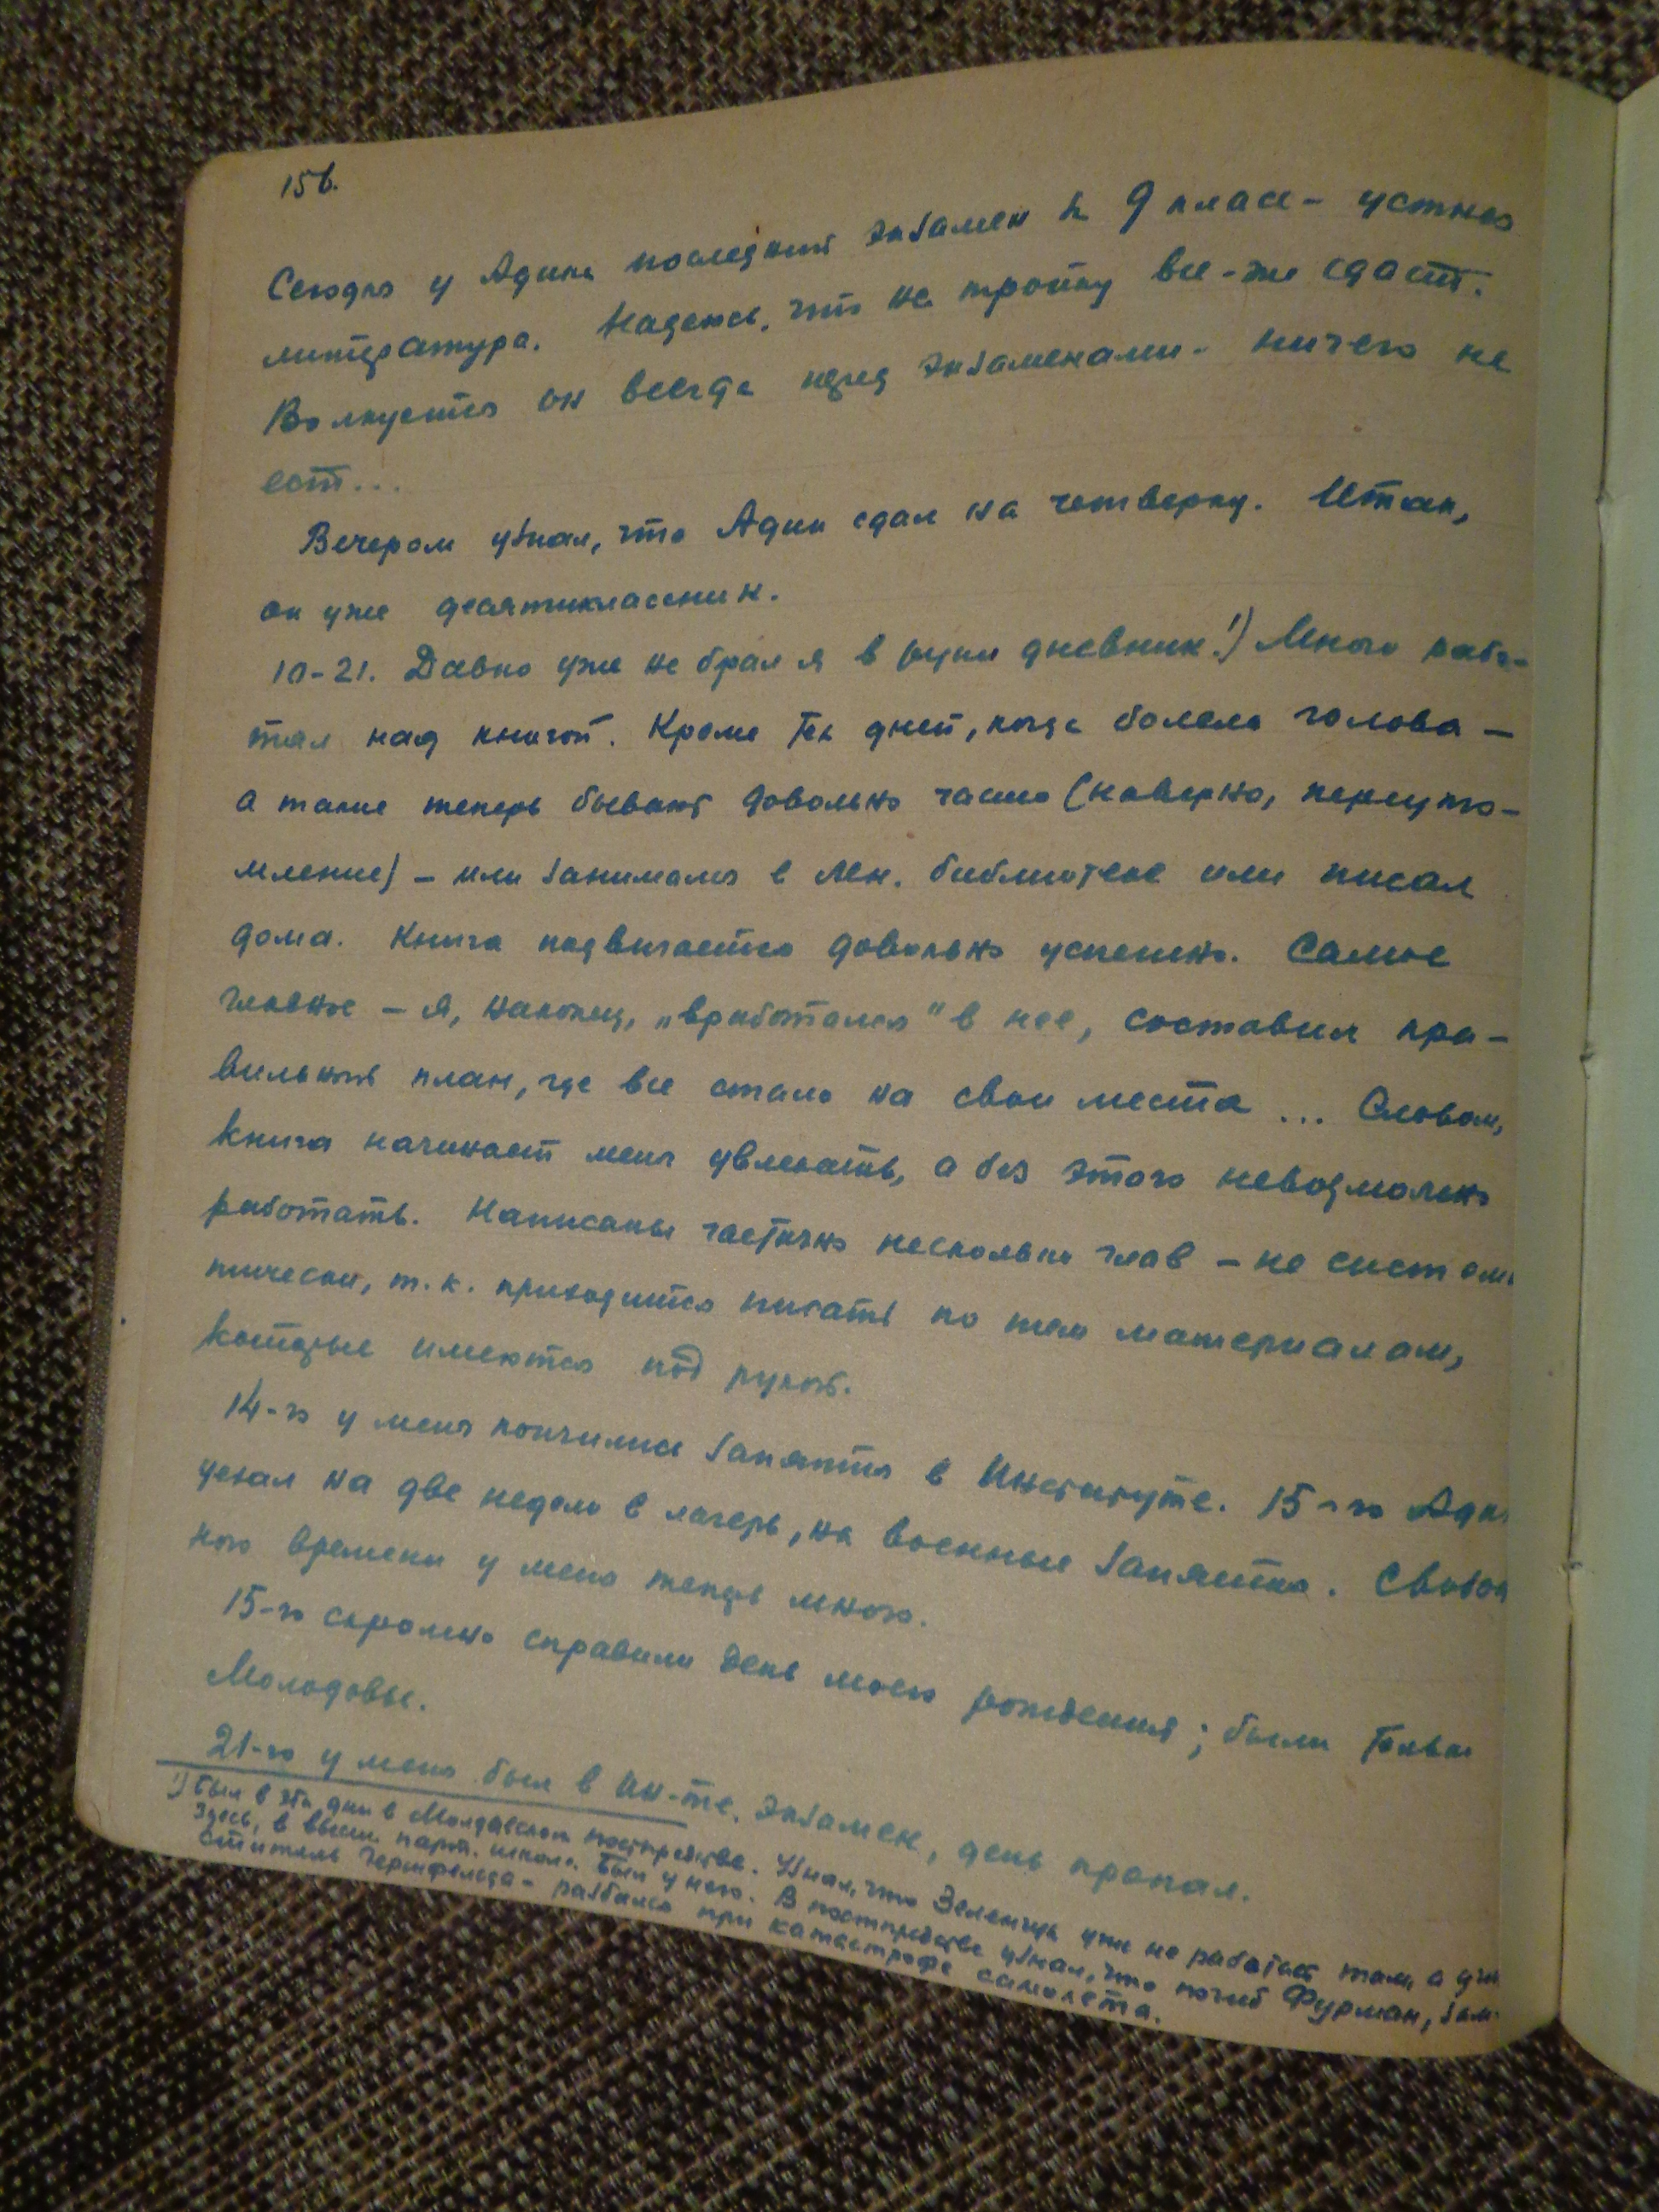 156.
Сегодня у Адика последний экзамен за 9 класс - устная
литература. Надеюсь, что на тройку все-же сдаст.
Волнуется он всегда перед экзаменами - ничего не
ест...
Вечером узнал, что Адик сдал на четверку. Итак,
он уже десятиклассник.
10-21. Давно уже не брал я в руки дневник.¹) Много рабо-
тал над книгой. Кроме тех дней, когда болела голова -
а такие теперь бывают довольно часто (наверно, переуто-
мление) - или занимался в Лен. библиотеке или писал
дома. Книга подвигается довольно успешно. Самое
главное - я, наконец, „вработался" в нее, составил пра-
вильный план, где все стало на свои места ... Словом,
книга начинает меня увлекать, а без этого невозможно
работать. Написаны частично несколько глав - не система
тически, т.к. приходится писать по тем материалам,
которые имеются под рукой.
14-го у меня кончились занятия в Институте. 15-го Адик
уехал на две недели в лагерь, на военные занятия. Свобод
ного времени у меня теперь много.
15-го скромно справили день моего рождения; были только
Молодовы.
21-го у меня был в Ин-те. экзамен, день пропал.
¹) Был в эти дни в Молдавском постпредстве. Узнал, что Зеленчук уже не работает там, а учи
здесь, в высш. парт. школе. Был у него. В постпредстве узнал, что погиб Фурман, зам-
ститель Герифельда - разбился при катастрофе самолета.